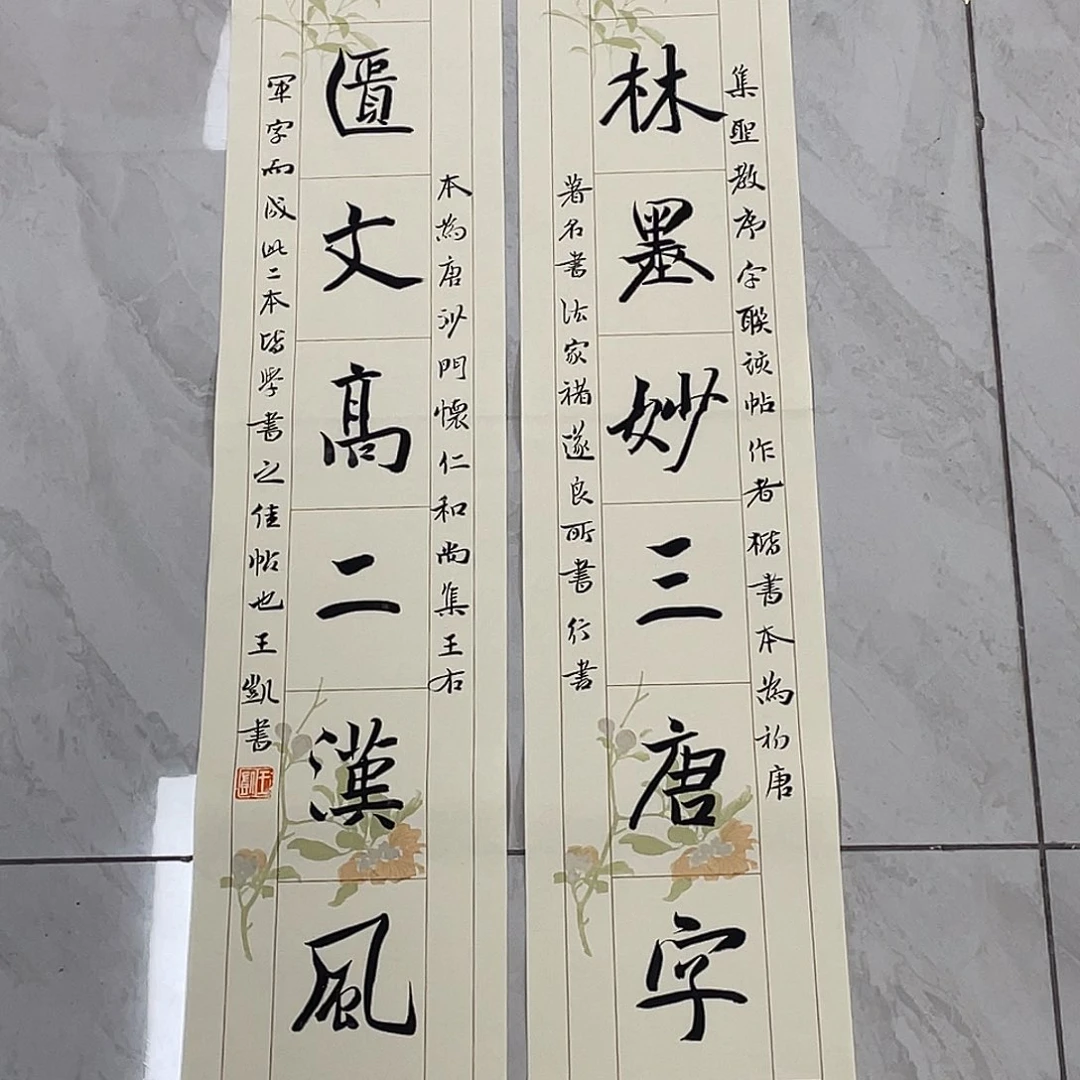 林墨妙三唐字
集聖教序字聯該帖作者楷書本為初唐
著名書法家褚遂良所書行書
匱文高二漢風
本為唐沙門懷仁和尚集王右
軍字而成此二本皆學書之佳帖也王凱書
王凱